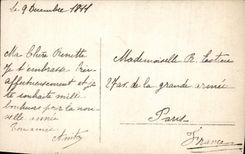 Le 9 Decembre 1911
Ma Chère Renette
Je t'embrasse très
affectueusement et je
te souhaite mille
bonheurs pour la nou-
velle année
Mademoiselle R.
de la grande armée
Paris
France